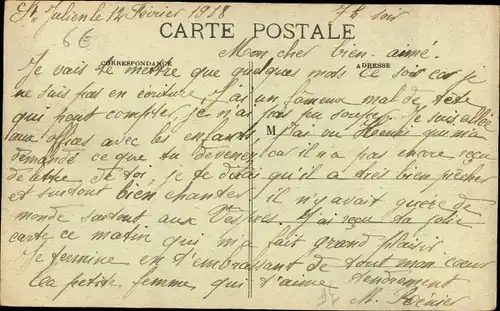 St Julien le 12 Février 1918 7h soir
6€
CARTE POSTALE
Mon cher bien-aimé.
CORRESPONDANCE
ADRESSE
Je vais te mettre que quelques mots ce soir car je
ne suis pas en écriture, J'ai un fameux mal de tête
qui peut compter, je n'ai pas pu souper. Je suis allée
aux offices avec les enfants, M J'ai vu Henri qui m'a
demandé ce que tu devenez car il n'a pas encore reçu
de lettre de toi, je te dirai qu'il a très bien prêcher
et surtout bien chanter, il n'y avait guère de
monde surtout aux Vêpres. J'ai reçu ta jolie
carte ce matin qui m'a fait grand plaisir
Je termine en t'embrassant de tout mon cœur
ta petite femme qui t'aime tendrement
M.